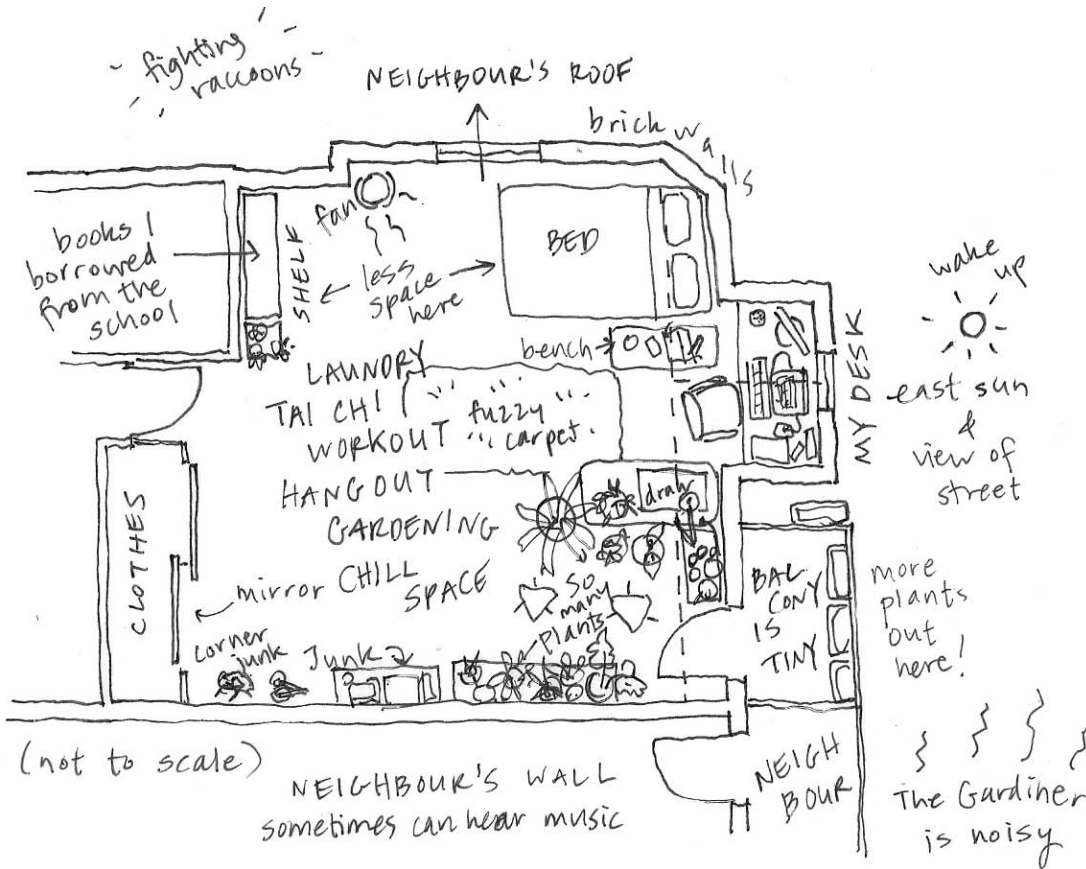 fighting
raccoons
NEIGHBOUR'S ROOF
brick walls
books I
borrowed
from the
school
SHELF
fan
less
space
here
BED
bench
wake
up
MY DESK
east sun
&
view of
street
LAUNDRY
TAI CHI
WORKOUT
HANGOUT
GARDENING
CHILL
SPACE
fuzzy
carpet
draw
CLOTHES
mirror
corner
junk
Junk
so
many
plants
BAL-
CONY
IS
TINY
more
plants
out
here!
(not to scale)
NEIGHBOUR'S WALL
sometimes can hear music
NEIGH
BOUR
The Gardiner
is noisy